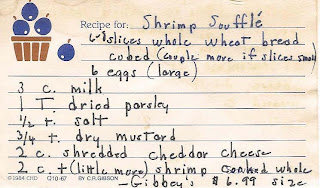 Recipe for: Shrimp Soufflé
6-8 slices whole wheat bread
cubed (couple more if slices small)
6 eggs (large)
3 c. milk
1 T. dried parsley
1/2 t. salt
3/4 t. dry mustard
2 c. shredded cheddar cheese
2 c. + (little more) shrimp cooked whole
- Gibbey's $6.99 size
©1984 CHD Q10-67 BY C.R. GIBSON